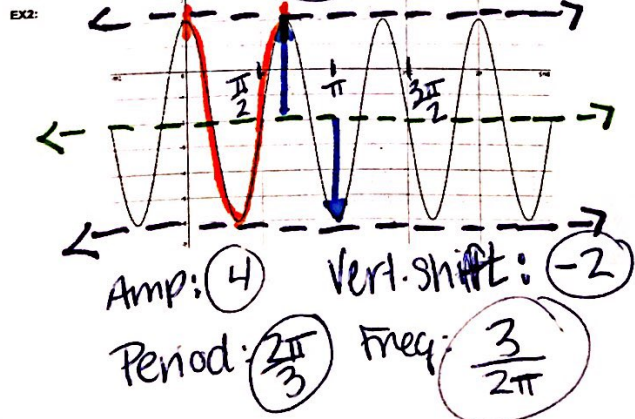 EX2:
π/2 π 3π/2
Amp: 4 Vert. shift: -2
Period: 2π/3 Freq: 3/2π